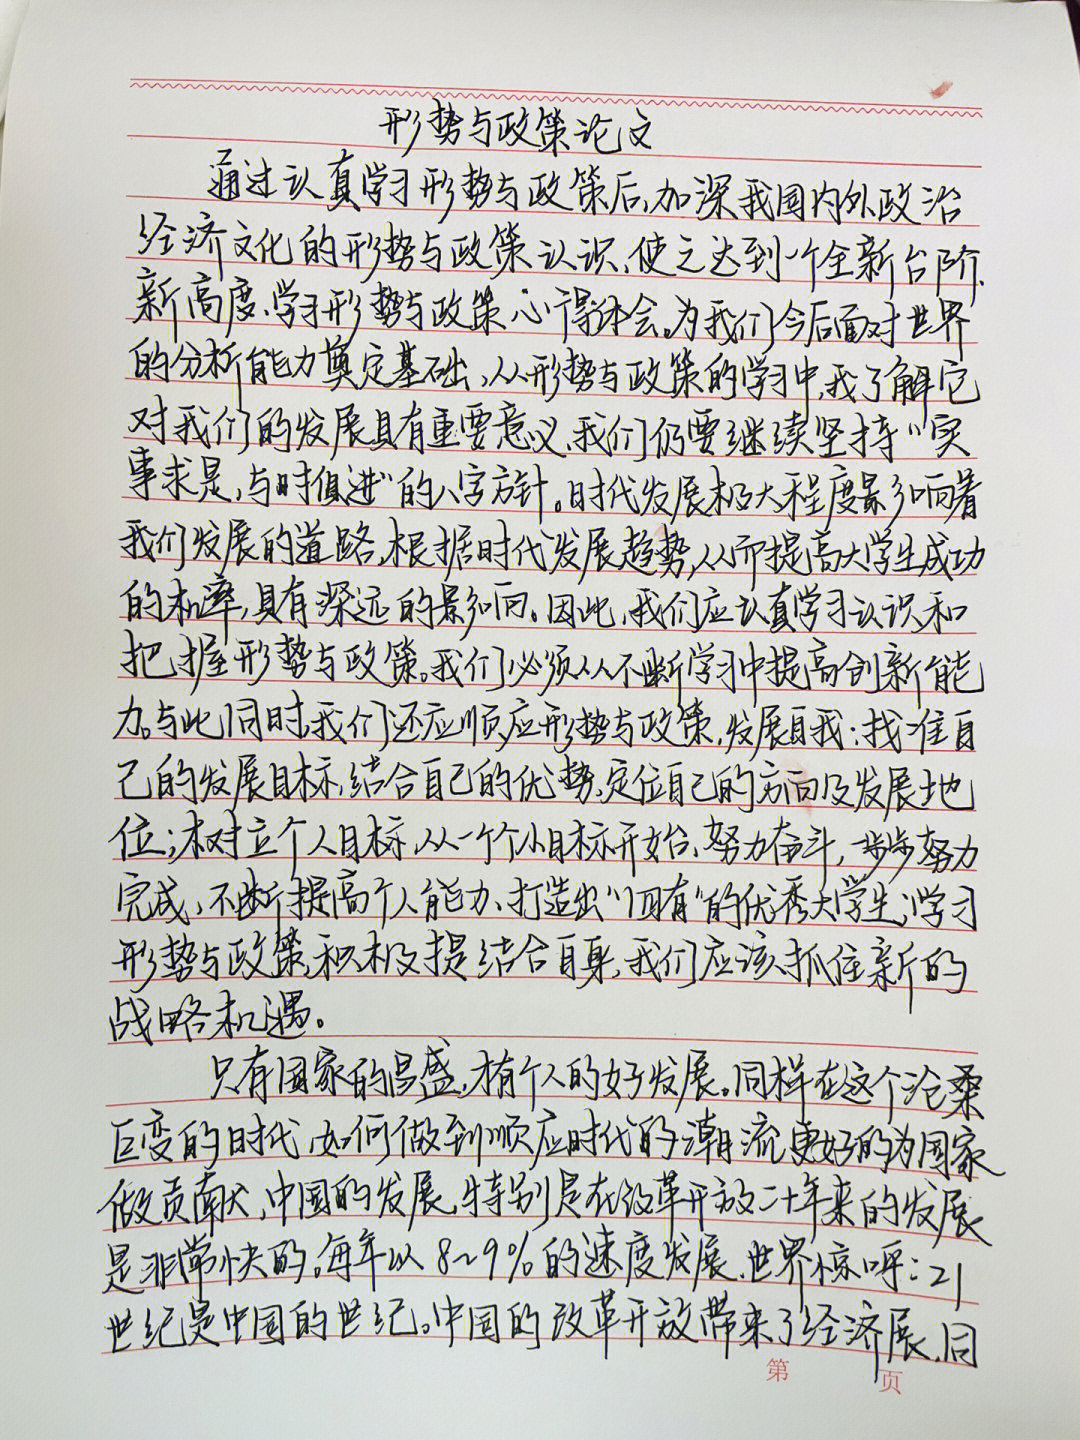 形势与政策论文
通过认真学习形势与政策后,加深我国内外政治
经济文化的形势与政策认识,使之达到一个全新台阶、
新高度、学习形势与政策心得体会。为我们今后面对世界
的分析能力奠定基础,从形势与政策的学习中,我了解它
对我们的发展具有重要意义,我们仍要继续坚持“实
事求是,与时俱进”的八字方针。时代发展极大程度影响着
我们发展的道路,根据时代发展趋势,从而提高大学生成功
的机率,具有深远的影响。因此,我们应认真学习认识和
把握形势与政策。我们必须从不断学习中提高创新能
力。与此同时,我们还应顺应形势与政策,发展自我:找准自
己的发展目标,结合自己的优势,定位自己的方向及发展地
位;树立个人目标,从一个个小目标开始,努力奋斗,步步努力
完成,不断提高个人能力、打造出“四有”的优秀大学生;学习
形势与政策,积极提结合自身,我们应该抓住新的
战略机遇。
只有国家的昌盛,才有个人的好发展。同样在这个沧桑
巨变的时代,如何做到顺应时代的潮流,更好的为国家
做贡献,中国的发展,特别是在改革开放二十年来的发展
是非常快的。每年以8~9%的速度发展,世界惊呼:21
世纪是中国的世纪。中国的改革开放带来了经济展,同
第 页